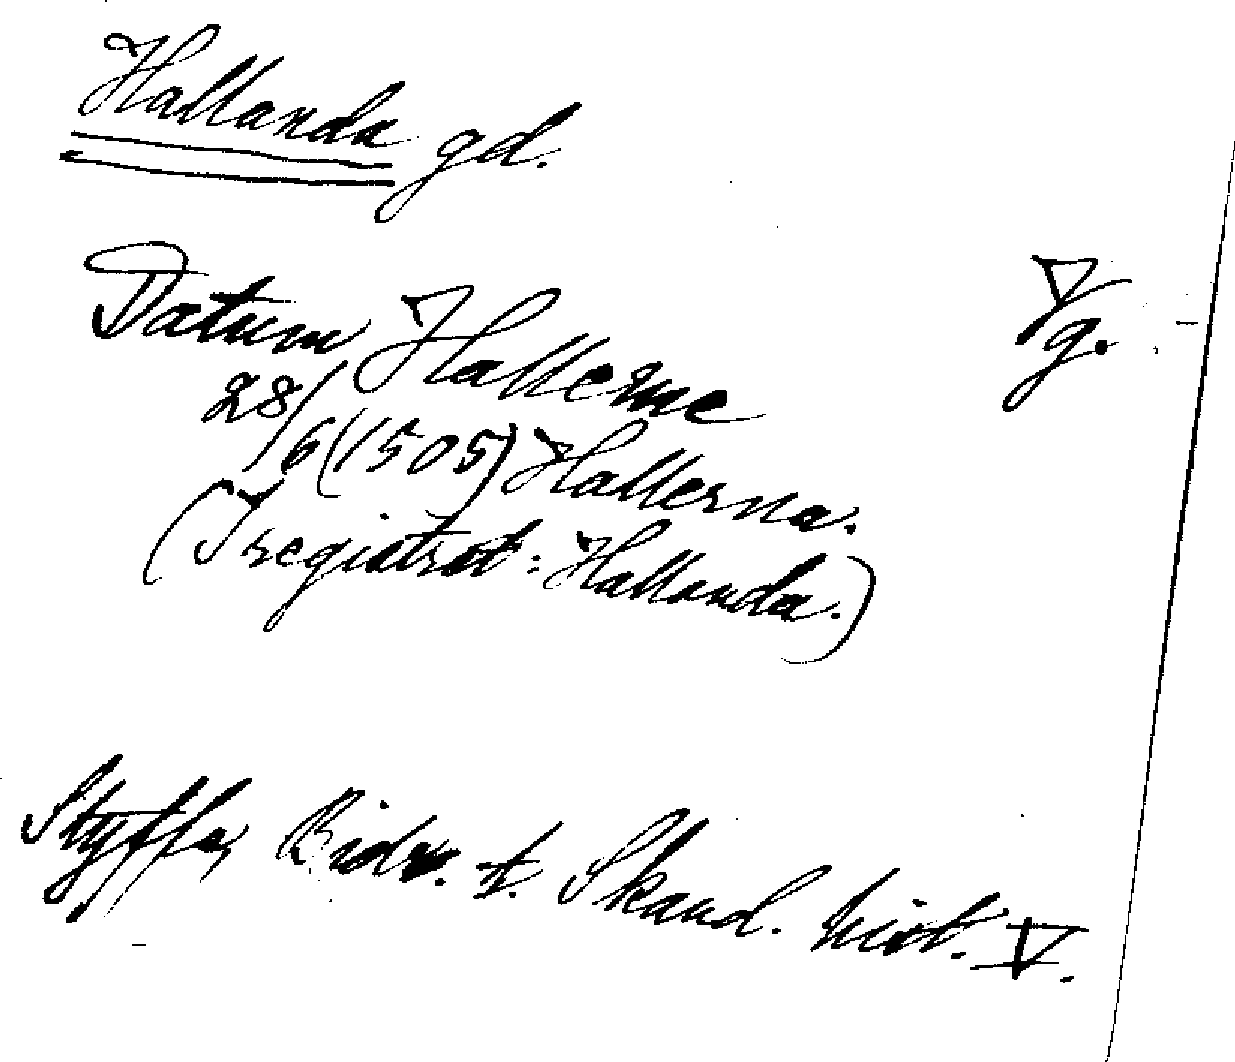 Hallanda gd.
Vg.
Datum Hallerne
28/6 (1505) Hallerna.
(I registrat: Hallanda.)
Styffe, Bidr. t. Skand. hist. V.